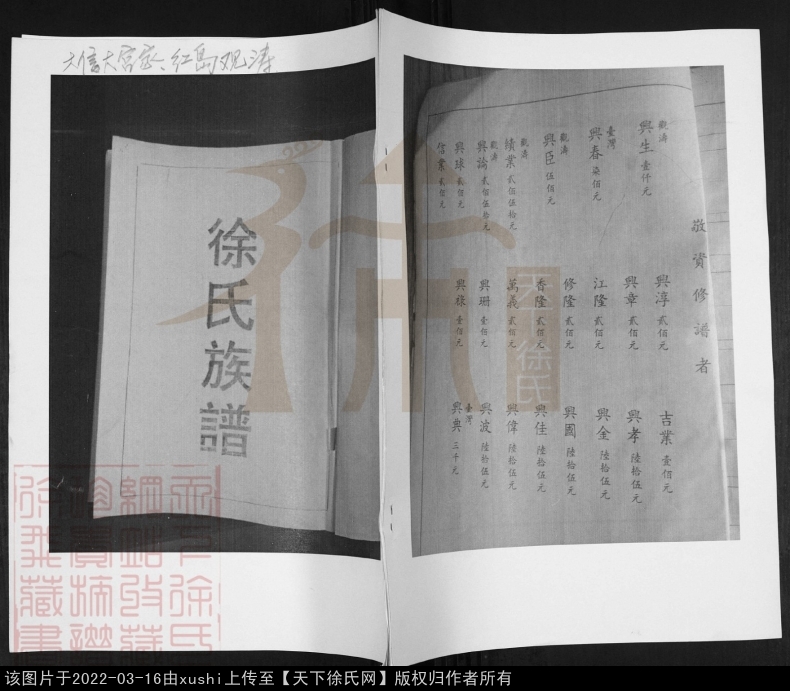 大信大宫家、红岛观涛
徐氏族譜
敬資修譜者
觀濤 興生 壹仟元
臺灣 興春 柒佰元
觀濤 興臣 伍佰元
觀濤 績業 貳佰伍拾元
觀濤 興論 貳佰伍拾元
興球 貳佰元
信業 貳佰元
興淳 貳佰元
興章 貳佰元
江隆 貳佰元
修隆 貳佰元
香隆 貳佰元
萬義 貳佰元
興珊 壹佰元
興祿 壹佰元
吉業 壹佰元
興孝 陸拾伍元
興金 陸拾伍元
興國 陸拾伍元
興佳 陸拾伍元
興偉 陸拾伍元
興波 陸拾伍元
臺灣 興典 三千元
天下徐氏
该图片于2022-03-16由xushi上传至【天下徐氏网】版权归作者所有